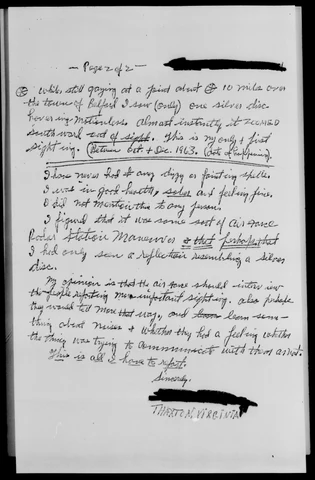 - Page 2 of 2 -
While still gazing at a point about 10 miles over
the town of Bedford I saw (only) one silver disc
hovering motionless almost instantly it zoomed
southward out of sight. This is my only & first
sighting. (Between Oct. & Dec. 1963. (date of happening)
I have never had any dizzy or fainting spells.
I was in good health, sober and feeling fine.
I did not mention this to any person.
I figured that it was some sort of air force
Radar Station Maneuver & that perhaps that
I had only seen a reflection resembling a silver
disc.
My opinion is that the air force should interview
the people reporting more important sighting. also perhaps
they would tell more that way, and learn some-
thing about noises & whether they had a feeling whether
the thing was trying to communicate with them or not.
This is all I have to report.
Sincerely,
THAXTON, VIRGINIA